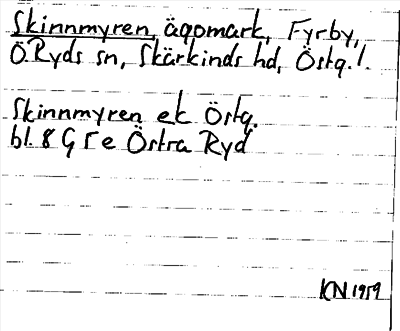 Skinnmyren, ägomark, Fyrby,
Ö. Ryds sn, Skärkinds hd, Östg. l.
Skinnmyren ek Östg.
bl. 8 G 5 e Östra Ryd
KN 1959